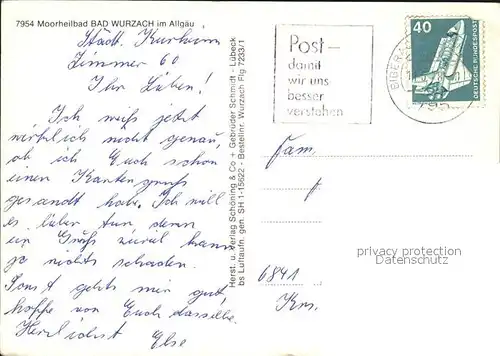 7954 Moorheilbad BAD WURZACH im Allgäu
Städt. Kurheim
Zimmer 60
Ihr Lieben!
Ich weiß jetzt
wirklich nicht genau,
ob ich Euch schon
einen Kartengruß
gesandt habe. Ich will
es lieber tun denn
ein Gruß zuviel kann
ja nichts schaden.
Sonst geht's mir gut,
hoffe von Euch dasselbe.
Herzlichst Else
Herst. u. Verlag Schöning & Co + Gebrüder Schmidt - Lübeck
bs Luftaufn. gen. SH 1-15622 - Bestellnr. Wurzach Flg 7233/1
Post-
damit
wir uns
besser
verstehen
BIBERA
795
40
DEUTSCHE BUNDESPOST
Fam.
privacy protection
Datenschutz
6841